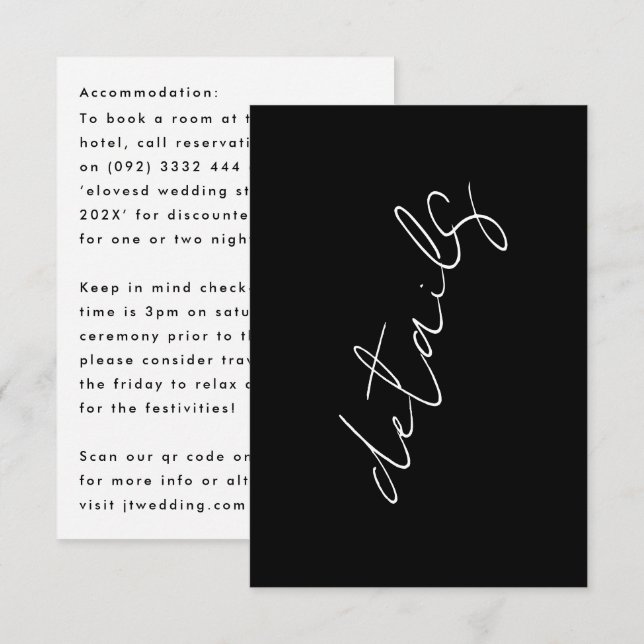 Accommodation:
To book a room at t
hotel, call reservati
on (092) 3332 444
'elovesd wedding st
202X' for discounte
for one or two nigh
Keep in mind check
time is 3pm on satu
ceremony prior to th
please consider trav
the friday to relax
for the festivities!
Scan our qr code on
for more info or alt
visit jtwedding.com
details